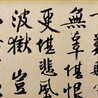 無辜堪恨
更堪悲風
波獄豈